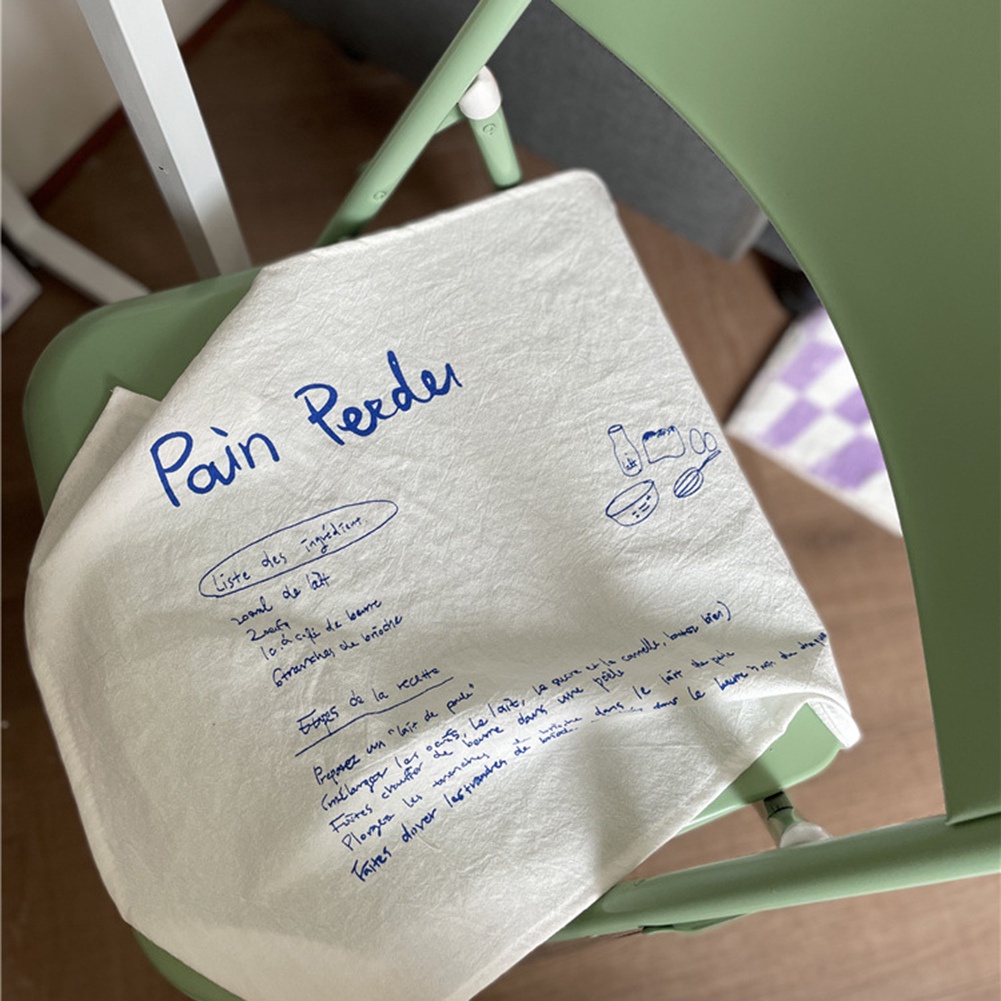 Pain Perdu
Liste des ingrédient
200ml de lait
2 oeufs
1c. à café de beurre
6 tranches de brioche
Etapes de la recette
Préparez un "lait de poule"
(mélangez les oeufs, le lait, le sucre et la cannelle, battez bien)
Faites chauffer de beurre dans une pôele
Plongez les tranches de brioche dans le lait de poule
Faites dorer les tranches de brioche dans le beurre
lait